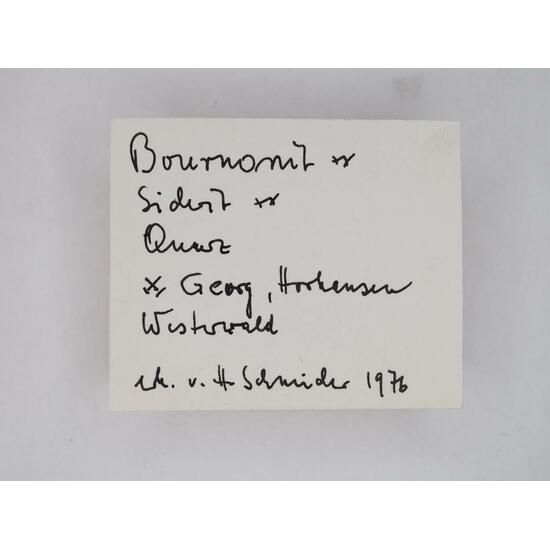 Bournonit xx
Siderit xx
Quarz
⚒ Georg, Horhausen
Westerwald
erh. v. H. Schneider 1976